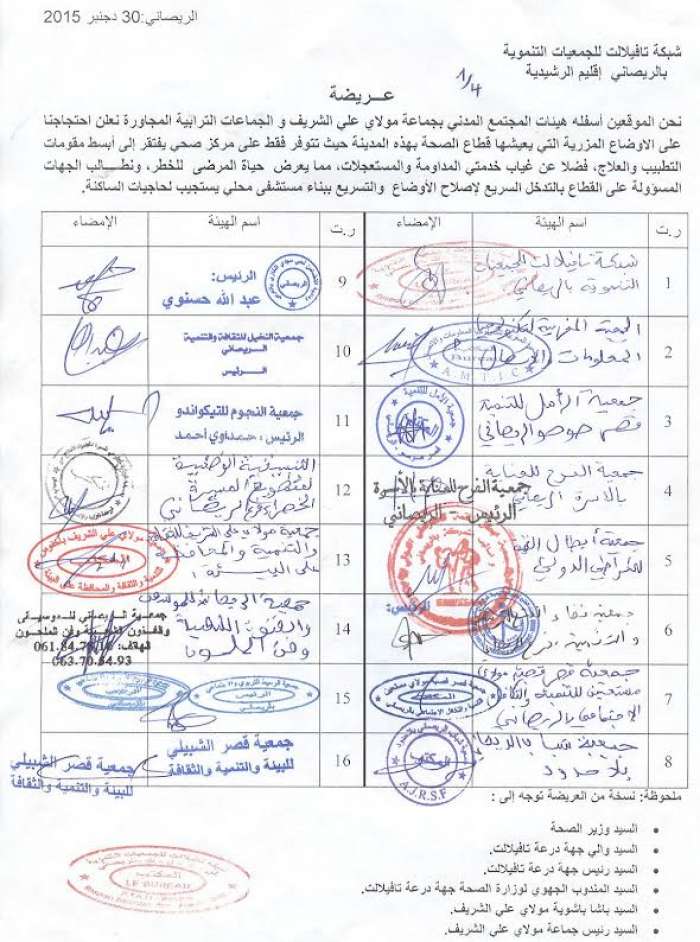 الريصاني:30 دجنبر 2015
شبكة تافيلالت للجمعيات التنموية
بالريصاني إقليم الرشيدية
1/4
عـــريضة
نحن الموقعين أسفله هيئات المجتمع المدني بجماعة مولاي علي الشريف و الجماعات الترابية المجاورة نعلن احتجاجنا
على الاوضاع المزرية التي يعيشها قطاع الصحة بهذه المدينة حيث تتوفر فقط على مركز صحي يفتقر إلى أبسط مقومات
التطبيب والعلاج، فضلا عن غياب خدمتي المداومة والمستعجلات، مما يعرض حياة المرضى للخطر، ونطـــالب الجهات
المسؤولة على القطاع بالتدخل السريع لإصلاح الأوضاع والتسريع ببناء مستشفى محلي يستجيب لحاجيات الساكنة.
ر.ت اسم الهيئة الإمضاء ر.ت اسم الهيئة الإمضاء
1 شبكة تافيلالت للجمعيات
التنموية بالريصاني
9 الرئيس:
عبد الله حسنوي
2 الجمعية المغربية لتكنولوجيا
المعلومات
A.M.T.I.C
10 جمعية النخيل للثقافة والتنمية
الريصاني
الرئيس
3 جمعية الأمل للتنمية
قصر
11 جمعية النجوم للتيكواندو
الرئيس: حمداوي أحمد
4 جمعية الفرح للعناية
بالأسرة الريصاني
جمعية الفرح للعناية بالأسرة
الرئيس - الريصاني
12 التنسيقية الوطنية
لمتطوعي المسيرة
الخضراء فرع الريصاني
5 جمعية أبطال
13 جمعية مولاي علي الشريف للثقافة
والتنمية والمحافظة
على البيئة
المكتب
6 جمعية
الرئيس:
14 جمعية الريصاني للموسيقى
والفنون الشعبية
وفن الملحون
جمعية الريصاني للموسيقى
والفنون الشعبية وفن الملحون
7 جمعية قصر قصبة مولاي
مستعين للتنمية والتكافل
الاجتماعي بالريصاني
15 الرئيس
بالريصاني
8 جمعية شباب الريصاني
بلا حدود
المكتب
A.J.R.S.F
16 جمعية قصر الشبيلي
للبيئة والتنمية والثقافة
جمعية قصر الشبيلي
للبيئة والتنمية والثقافة
ملحوظة: نسخة من العريضة توجه إلى :
• السيد وزير الصحة
• السيد والي جهة درعة تافيلالت.
• السيد رئيس جهة درعة تافيلالت.
• السيد المندوب الجهوي لوزارة الصحة جهة درعة تافيلالت.
• السيد باشا باشوية مولاي علي الشريف.
• السيد رئيس جماعة مولاي علي الشريف.
المكتب
LE BUREAU